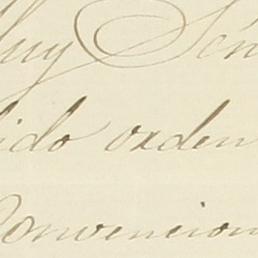 Muy Señ
ido orden
Convencion